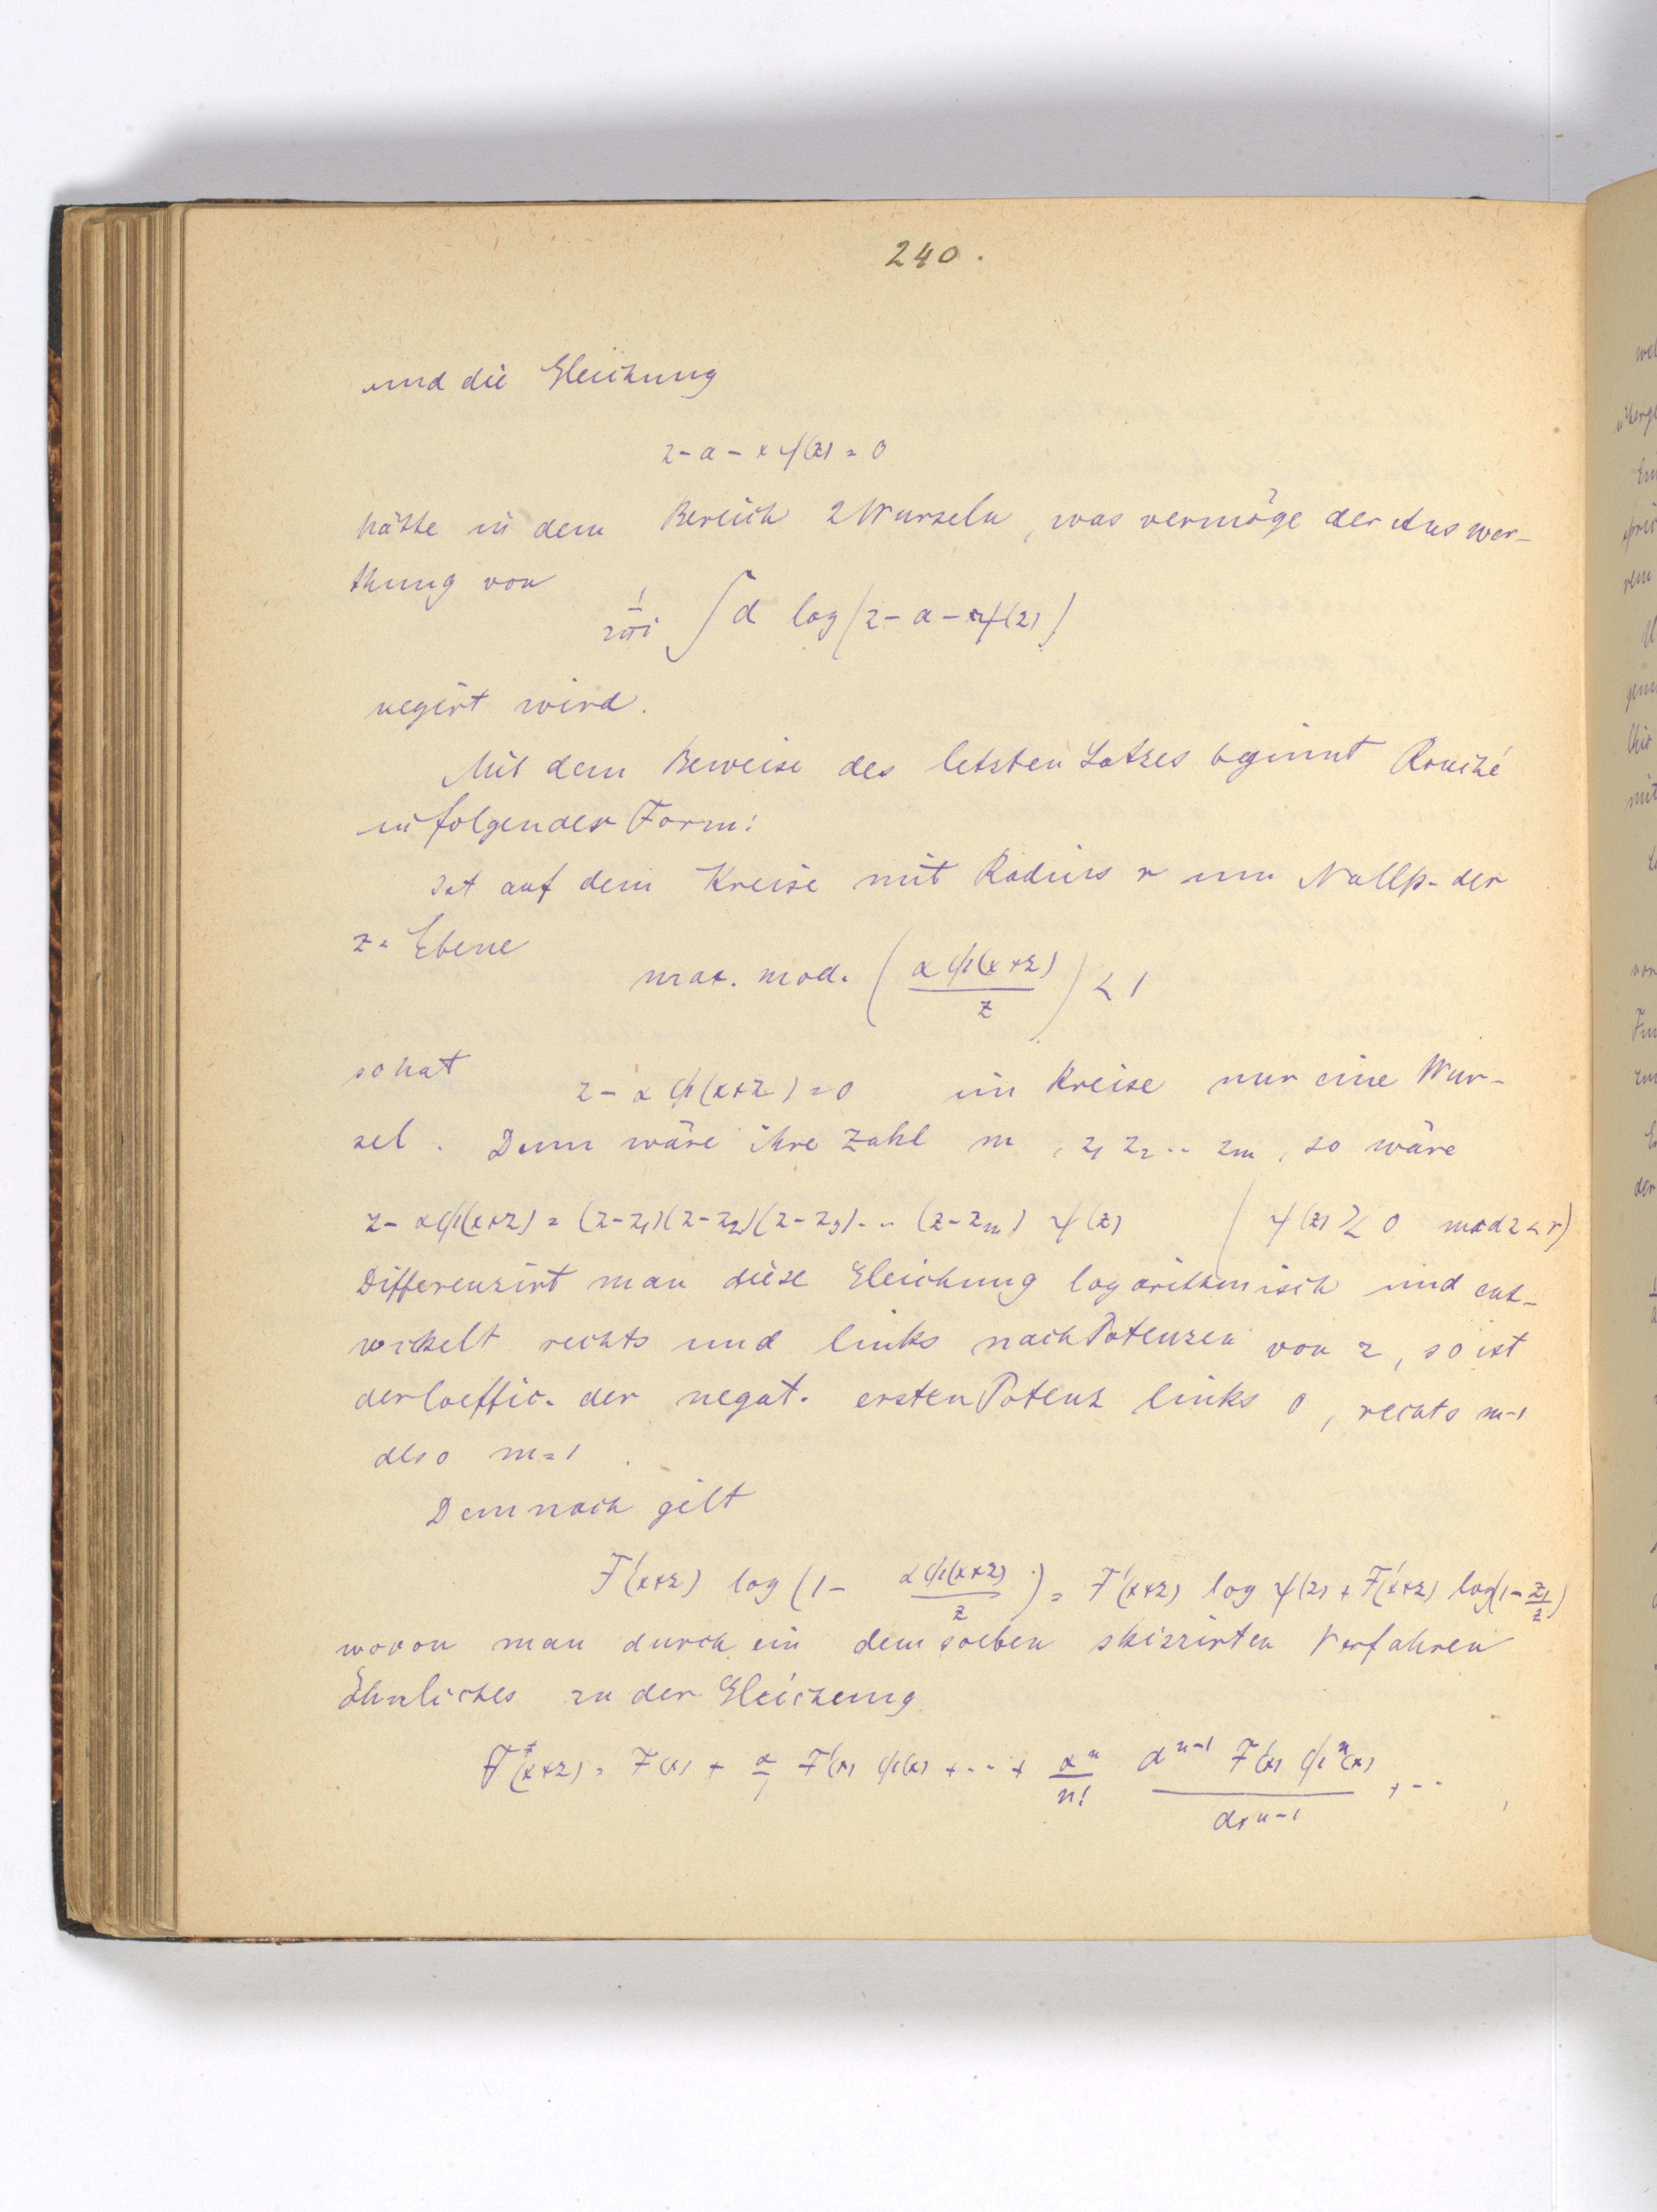 240.
und die Gleichung
z - a - x f(z) = 0
hätte in dem Bereich 2 Wurzeln, was vermöge der Auswer-
thung von
1/2πi ∫ d log (z - a - x f(z))
negirt wird.
Mit dem Beweise des letzten Satzes beginnt Rouché
in folgender Form:
Ist auf dem Kreise mit Radius r um Nullp. der
z-Ebene
max. mod. ( α φ(x+z) / z ) < 1
so hat
z - α φ(x+z) = 0 im Kreise nur eine Wur-
zel. Denn wäre ihre Zahl m, z₁ z₂ .. zₘ, so wäre
z - α φ(x+z) = (z-z₁)(z-z₂)(z-z₃)... (z-zₘ) ψ(z) ( ψ(z) ≷ 0 mod z < r)
Differenzirt man diese Gleichung logarithmisch und ent-
wickelt rechts und links nach Potenzen von z, so ist
der Coeffic. der negat. ersten Potenz links 0, rechts m-1
also m=1.
Demnach gilt
F'(x+z) log (1 - α φ(x+z) / z ) = F'(x+z) log ψ(z) + F'(x+z) log(1 - z₁/z)
wovon man durch ein dem soeben skizzirten Verfahren
Ähnliches zu der Gleichung
F(x+z) = F(x) + α/1 F'(x) φ(x) + ... + αⁿ/n! dⁿ⁻¹ F'(x) φⁿ(x) / dxⁿ⁻¹ + ...